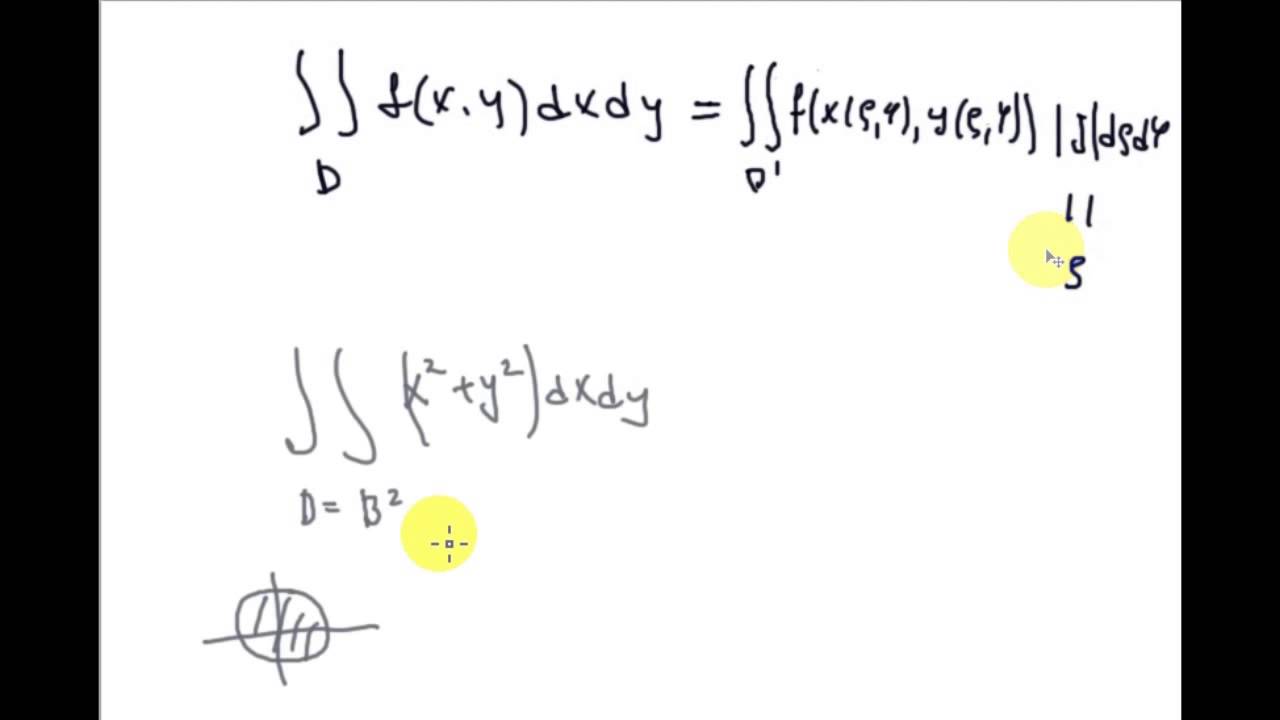 ∬ f(x,y)dxdy = ∬ f(x(ρ,φ),y(ρ,φ)) |J|dρdφ
D D'
||
ρ
∬ (x²+y²)dxdy
D = B²